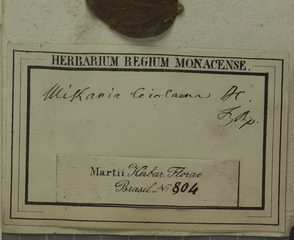 HERBARIUM REGIUM MONACENSE.
Mikania leiolaena DC.
Martii Herbar. Florae
Brasil. No 804